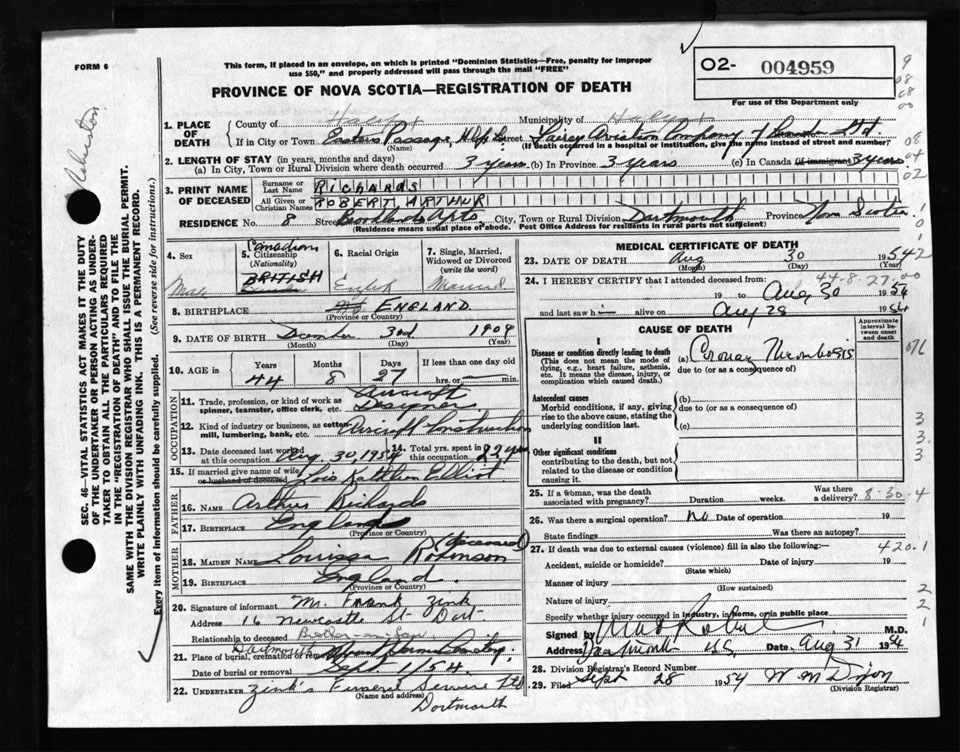 FORM 6
This form, if placed in an envelope, on which is printed "Dominion Statistics—Free, penalty for improper
use $50," and properly addressed will pass through the mail "FREE"
O2- 004959
For use of the Department only
PROVINCE OF NOVA SCOTIA—REGISTRATION OF DEATH
1. PLACE OF DEATH County of Halifax Municipality of Halifax
If in City or Town Eastern Passage, Fairey Aviation Company of Ltd.
(Name) (If death occurred in a hospital or institution, give the name instead of street and number)
2. LENGTH OF STAY (in years, months and days)
(a) In City, Town or Rural Division where death occurred 3 years (b) In Province 3 years (c) In Canada (if immigrant) 3 years.
3. PRINT NAME OF DECEASED
Surname or Last Name RICHARDS
All Given or Christian Names ROBERT, ARTHUR
RESIDENCE No. 8 Street City, Town or Rural Division Dartmouth Province Nova Scotia
(Residence means usual place of abode. Post Office Address for residents in rural parts not sufficient)
4. Sex Male
5. Citizenship (Nationality) Canadian BRITISH
6. Racial Origin English
7. Single, Married, Widowed or Divorced (write the word) Married
8. BIRTHPLACE ENGLAND
(Province or Country)
9. DATE OF BIRTH December 3rd 1909
(Month) (Day) (Year)
10. AGE in Years 44 Months 8 Days 27 If less than one day old hrs. or min.
OCCUPATION
11. Trade, profession, or kind of work as spinner, teamster, office clerk, etc. Aircraft Designer
12. Kind of industry or business, as cotton mill, lumbering, bank, etc. Aircraft Construction
13. Date deceased last worked at this occupation Aug. 30, 1954 14. Total yrs. spent in this occupation 22 yrs
15. If married give name of wife or husband of deceased Lois Kathleen Elliot
FATHER
16. NAME Arthur Richards
17. BIRTHPLACE England
(Province or Country)
MOTHER
18. MAIDEN NAME Louissa Robinson (deceased)
19. BIRTHPLACE England.
(Province or Country)
20. Signature of informant Mr. Frank Zink
Address 16 Newcastle St- Dart-
Relationship to deceased Brother-in-law
21. Place of burial, cremation or removal Dartmouth
Date of burial or removal Sept 1/54
22. UNDERTAKER Zink's Funeral Service Ltd
(Name and address)
Dartmouth
MEDICAL CERTIFICATE OF DEATH
23. DATE OF DEATH Aug 30 1954
(Month) (Day) (Year)
24. I HEREBY CERTIFY that I attended deceased from:
44-8-27
19 to Aug 30 1954
and last saw h alive on Aug 28 1954
CAUSE OF DEATH
Approximate interval between onset and death
I
Disease or condition directly leading to death
(This does not mean the mode of dying, e.g., heart failure, asthenia, etc. It means the disease, injury, or complication which caused death.)
(a) Coronary Thrombosis
due to (or as a consequence of)
Antecedent causes
Morbid conditions, if any, giving rise to the above cause, stating the underlying condition last.
(b)
due to (or as a consequence of)
(c)
II
Other significant conditions
contributing to the death, but not related to the disease or condition causing it.
25. If a woman, was the death associated with pregnancy? Duration weeks. Was there a delivery? 8-30-4
26. Was there a surgical operation? No Date of operation 19
State findings Was there an autopsy?
27. If death was due to external causes (violence) fill in also the following:— 420.1
Accident, suicide or homicide? Date of injury 19
(State which)
Manner of injury
(How sustained)
Nature of injury
Specify whether injury occurred in industry, in home, or in public place
Signed by M.D.
Address Dartmouth NS Date Aug 31 1954
28. Division Registrar's Record Number
29. Filed Sept 28 1954 W M
(Division Registrar)
SEC. 46—VITAL STATISTICS ACT MAKES IT THE DUTY
OF THE UNDERTAKER OR PERSON ACTING AS UNDER-
TAKER TO OBTAIN ALL THE PARTICULARS REQUIRED
IN THE "REGISTRATION OF DEATH" AND TO FILE THE
SAME WITH THE DIVISION REGISTRAR WHO SHALL ISSUE THE BURIAL PERMIT.
WRITE PLAINLY WITH UNFADING INK. THIS IS A PERMANENT RECORD.
Every item of information should be carefully supplied. (See reverse side for instructions.)